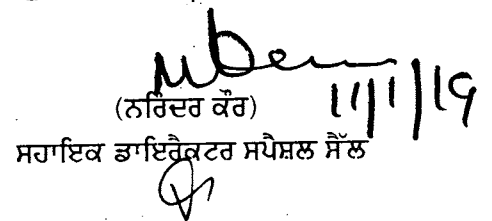 11/1/19
(ਨਰਿੰਦਰ ਕੌਰ)
ਸਹਾਇਕ ਡਾਇਰੈਕਟਰ ਸਪੈਸ਼ਲ ਸੈੱਲ